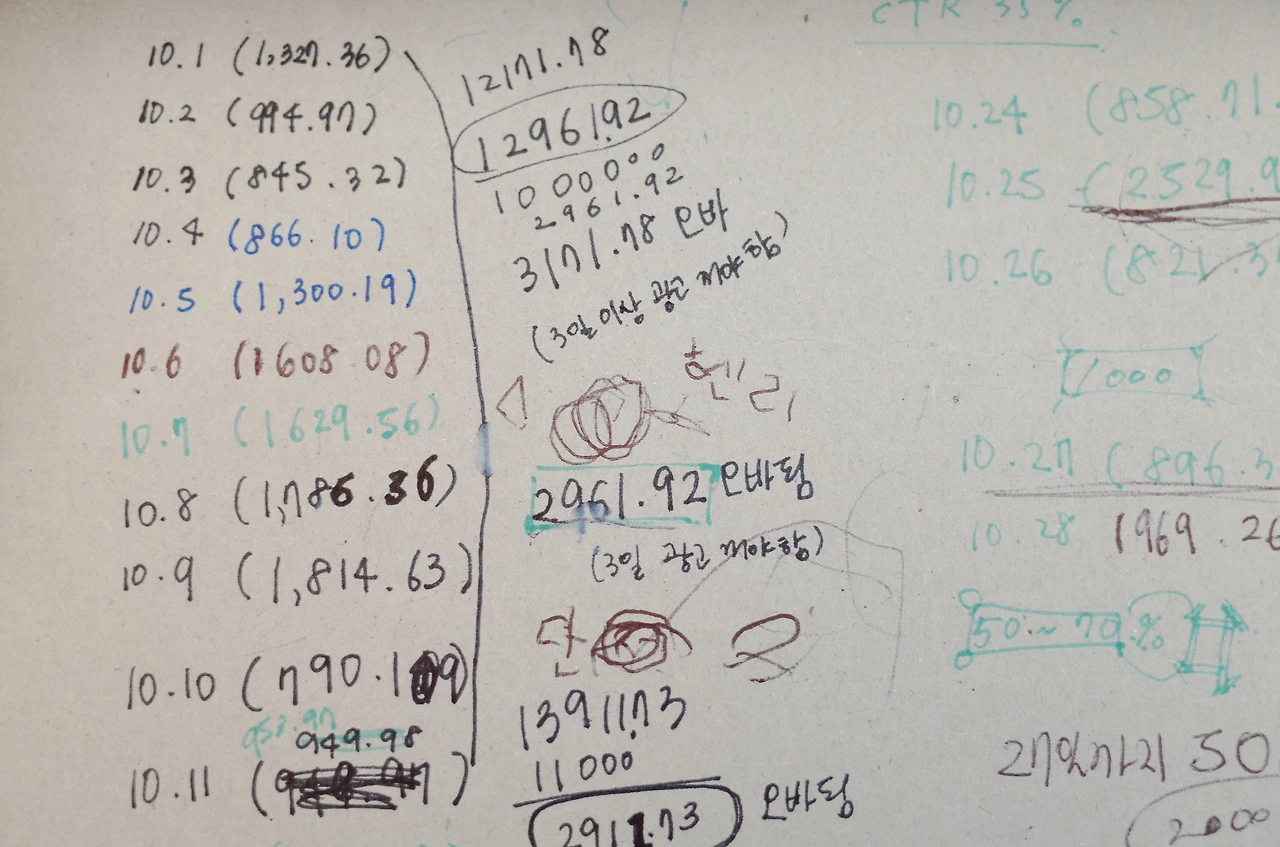 10.1 (1,327.36)
10.2 (994.97)
10.3 (845.32)
10.4 (866.10)
10.5 (1,300.19)
10.6 (1608.08)
10.7 (1629.56)
10.8 (1,786.36)
10.9 (1,814.63)
10.10 (790.19)
953.97
949.98
10.11 (
12171.78
12961.92
10000.00
2961.92
3171.78 오바
(3일 이상 광고 째야 함)
2961.92 오바됨
(3일 광고 째야함)
13911.73
11000
2911.73 오바됨
CTR 33%
10.24 (858.71
10.25 (2529.9
10.26 (821.3
1000
10.27 (896.3
10.28 1969.26
50~70%
27일까지 50
2000